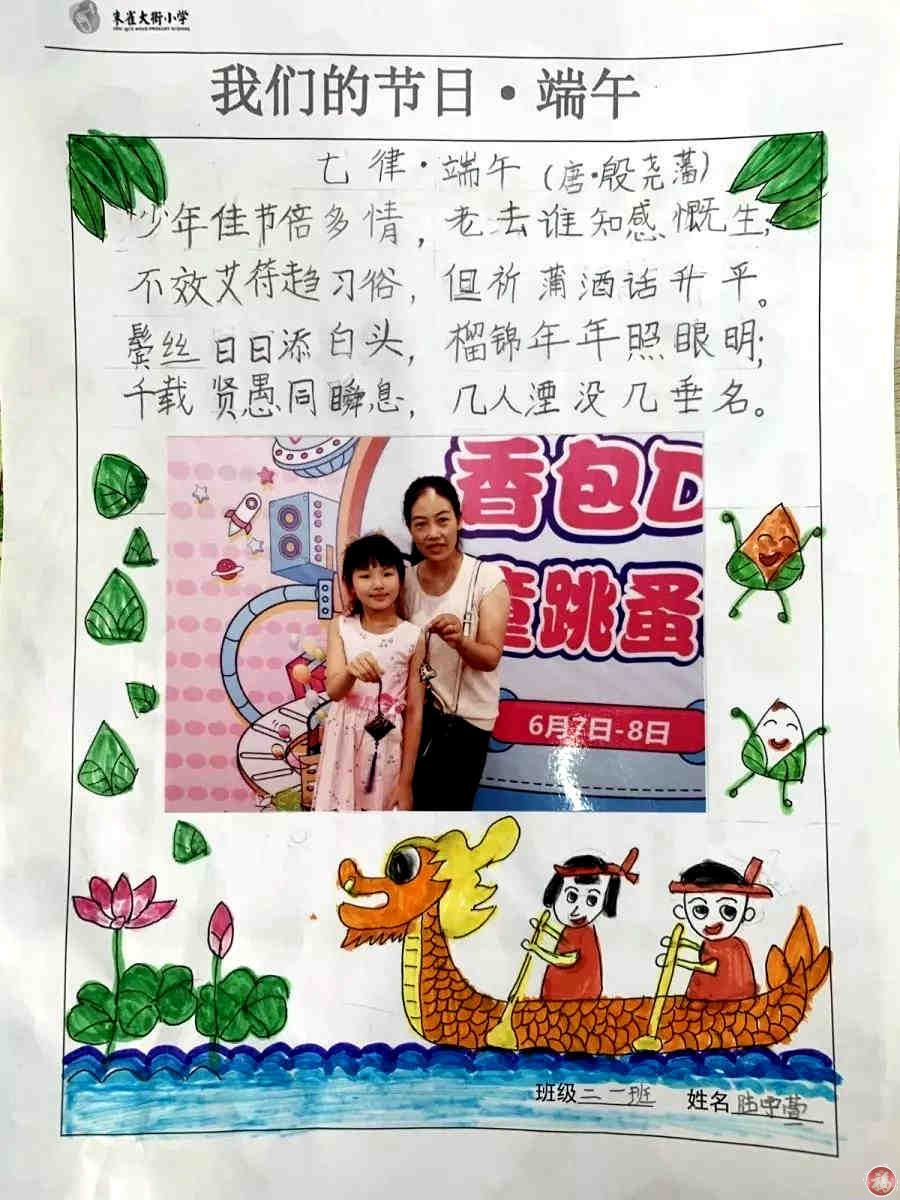 朱雀大街小学
我们的节日·端午
七律·端午(唐·殷尧藩)
少年佳节倍多情,老去谁知感慨生;
不效艾符趋习俗,但祈蒲酒话升平。
鬓丝日日添白头,榴锦年年照眼明;
千载贤愚同瞬息,几人湮没几垂名。
香包D
跳蚤
6月7日-8日
班级二一班 姓名
福